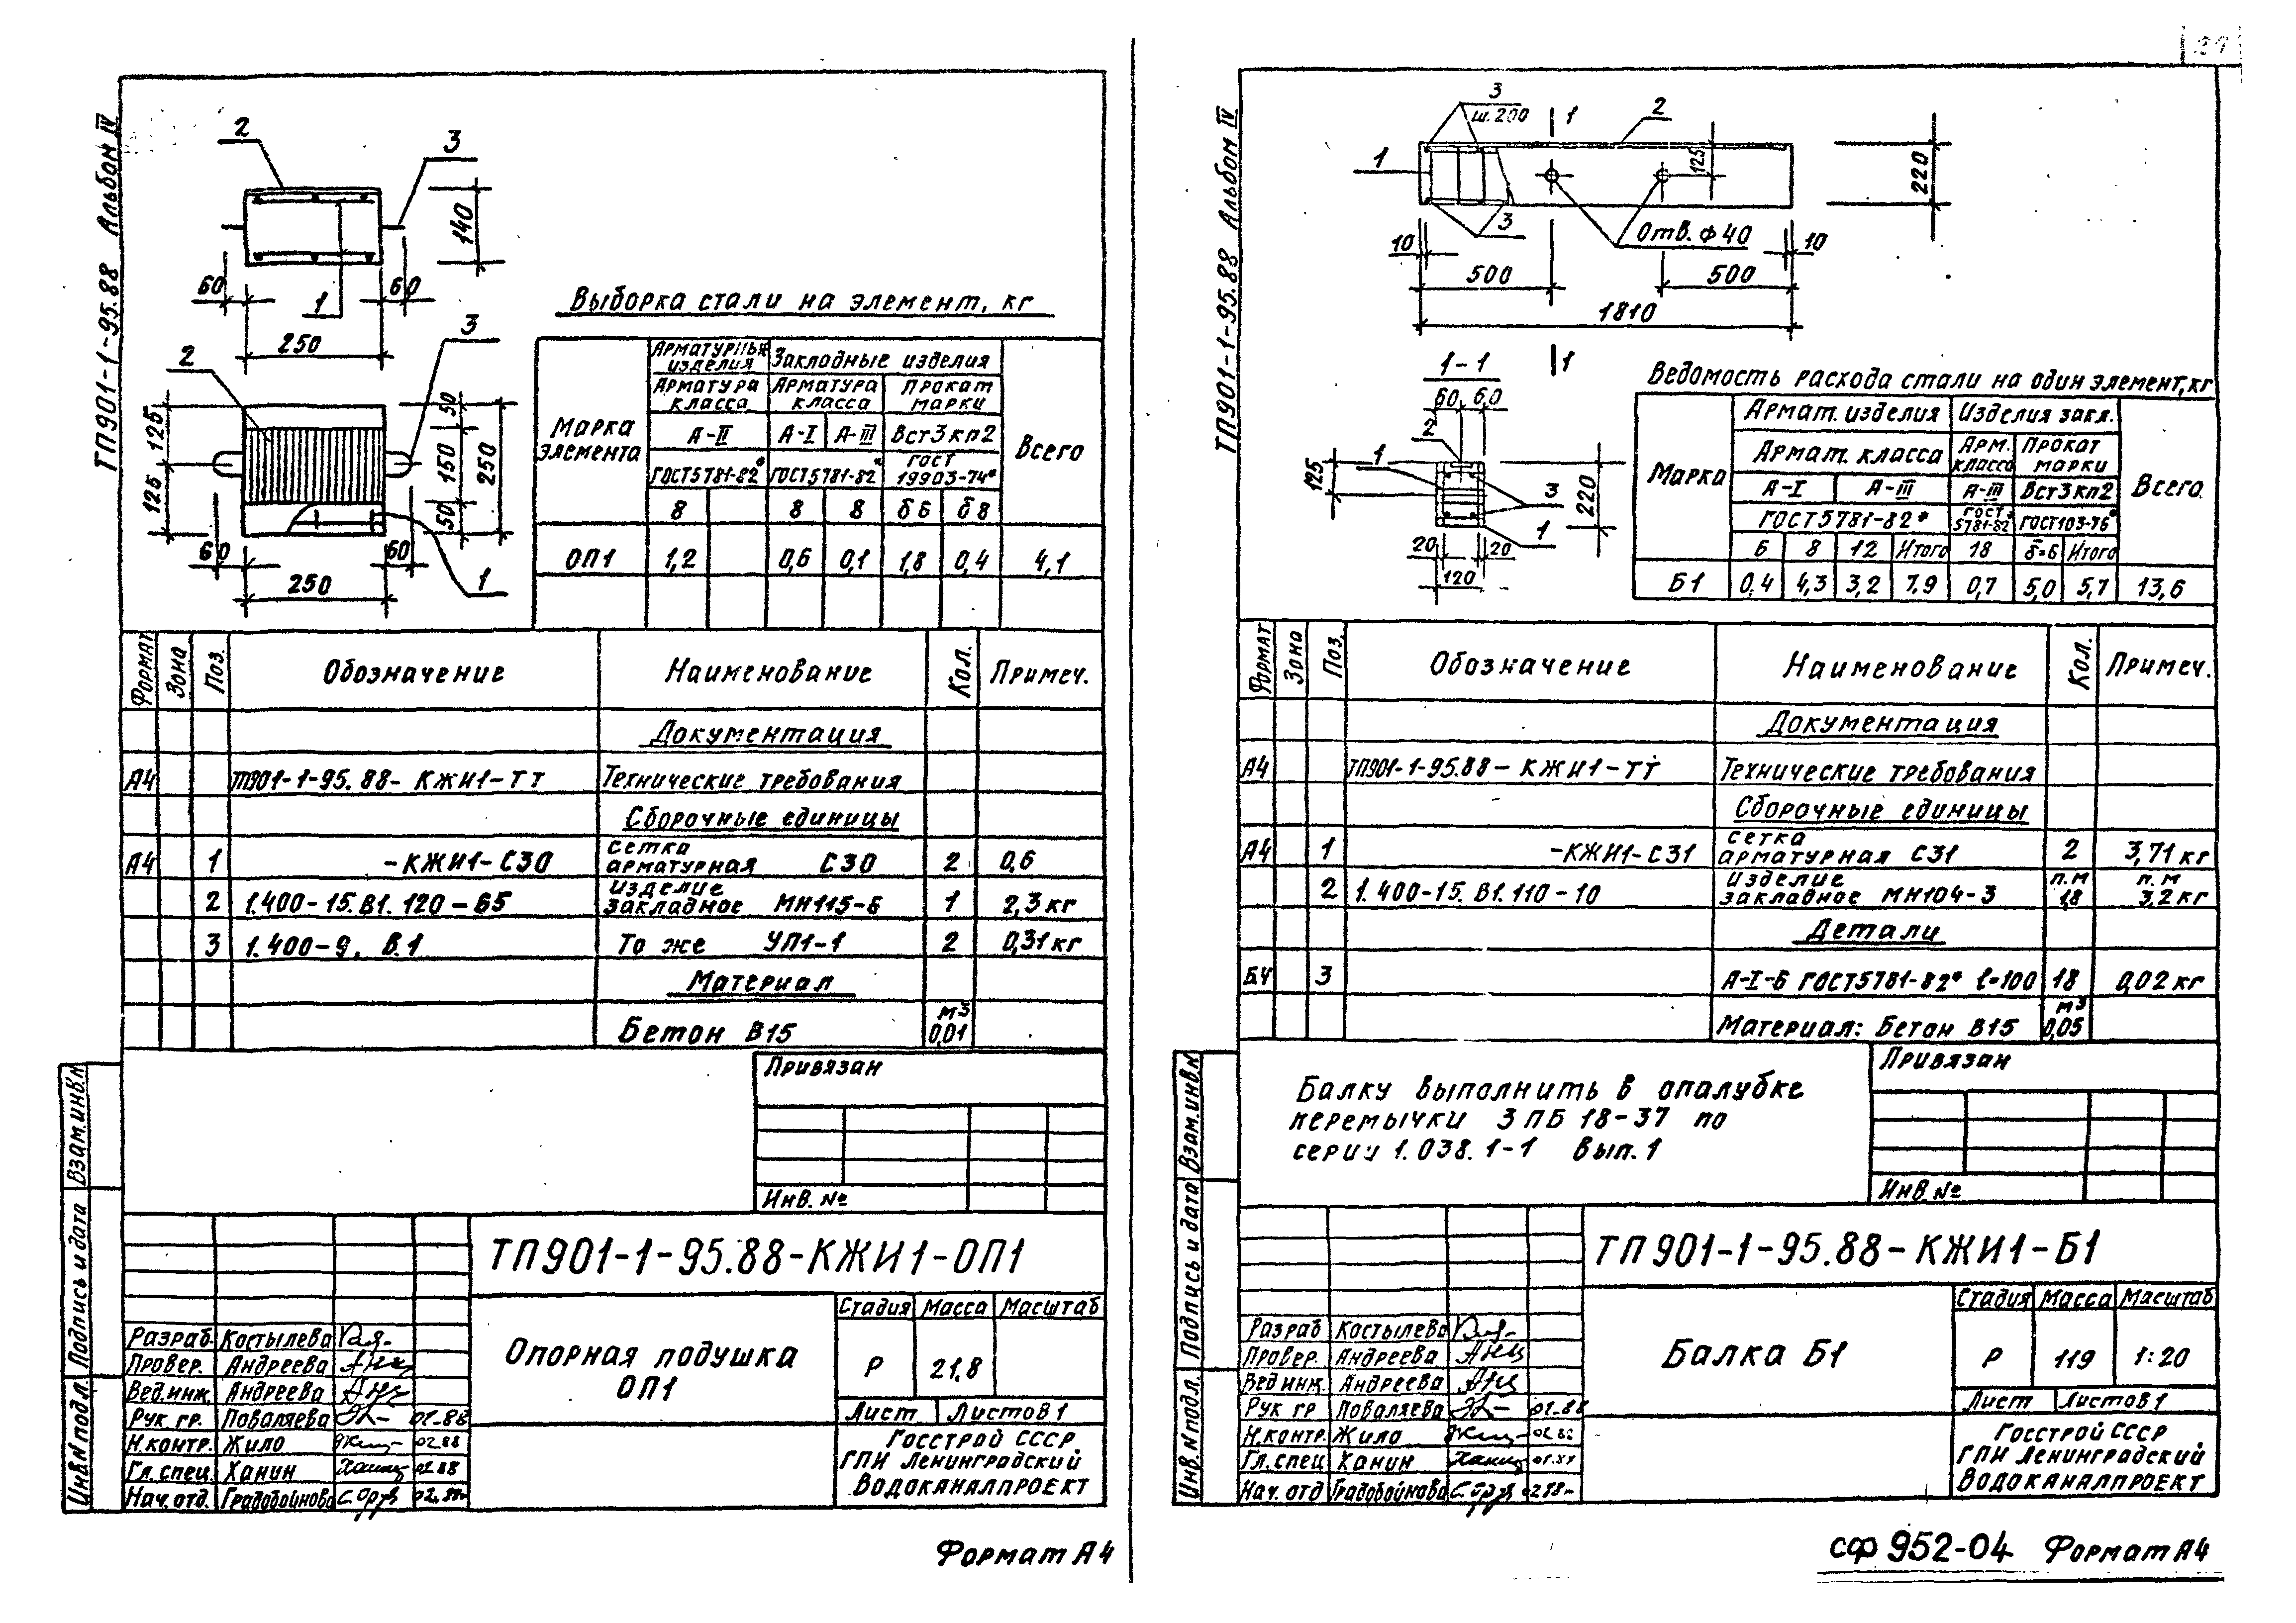 ТП901-1-95.88 Альбом IV
2
3
140
60
60
1
250
3
2
125
125
50
150
50
250
60
60
250
1
Выборка стали на элемент, кг
Марка элемента
Арматурные изделия
Закладные изделия
Всего
Арматура класса
Арматура класса
Прокат марки
А-II
А-I
А-III
Вст3кп2
ГОСТ5781-82*
ГОСТ5781-82*
ГОСТ 19903-74*
8
8
8
δ6
δ8
ОП1
1,2
0,6
0,1
1,8
0,4
4,1
Формат
Зона
Поз.
Обозначение
Наименование
Кол.
Примеч.
Документация
А4
ТП901-1-95.88-КЖИ1-ТТ
Технические требования
Сборочные единицы
А4 1 -КЖИ1-С30 Сетка арматурная С30 2 0,6
2 1.400-15.В1.120-65 Изделие закладное МН115-6 1 2,3кг
3 1.400-9, В.1 То же УП1-1 2 0,31кг
Материал
Бетон В15 м³ 0,01
Привязан
Инв. №
Взам.инв.№
Подпись и дата
Инв.№ подл.
ТП901-1-95.88-КЖИ1-ОП1
Опорная подушка
ОП1
Стадия Масса Масштаб
Р 21,8
Лист Листов 1
Госстрой СССР
ГПИ Ленинградский
Водоканалпроект
Разраб. Костылева
Провер. Андреева
Вед.инж. Андреева
Рук гр. Поваляева 02-88
Н.контр. Жило 02.88
Гл.спец. Ханин 02.88
Нач.отд. Градобойнова
Формат А4
ТП901-1-95.88 Альбом IV
3
ш.200
1
2
1
125
220
3
Отв. ф40
10
10
500
500
1810
1
1-1
60 60
2
1
125
220
3
1
20
20
120
Ведомость расхода стали на один элемент,кг
Марка
Армат. изделия
Изделия закл.
Всего
Армат. класса
Арм. класса
Прокат марки
А-I
А-III
А-III
Вст3кп2
ГОСТ5781-82*
ГОСТ 5781-82*
ГОСТ103-76*
6 8 12 Итого 18 δ=6 Итого
Б1 0,4 4,3 3,2 7,9 0,7 5,0 5,7 13,6
Формат
Зона
Поз.
Обозначение
Наименование
Кол.
Примеч.
Документация
А4 ТП901-1-95.88-КЖИ1-ТТ Технические требования
Сборочные единицы
А4 1 -КЖИ1-С31 Сетка арматурная С31 2 3,71кг
2 1.400-15.В1.110-10 Изделие закладное МН104-3 п.м 1,8 п.м 3,2кг
Детали
БЧ 3 А-I-6 ГОСТ5781-82* ℓ=100 18 0,02кг
Материал: Бетон В15 м³ 0,05
Балку выполнить в опалубке
перемычки 3ПБ 18-37 по
серии 1.038.1-1 Вып.1
Привязан
Инв. №
Взам.инв.№
Подпись и дата
Инв.№ подл.
ТП901-1-95.88-КЖИ1-Б1
Балка Б1
Стадия Масса Масштаб
Р 119 1:20
Лист Листов 1
Госстрой СССР
ГПИ Ленинградский
Водоканалпроект
Разраб Костылева
Провер. Андреева
Вед инж. Андреева
Рук гр Поваляева
Н.контр. Жило 02.88
Гл.спец Ханин
Нач. отд Градобойнова
СФ 952-04 Формат А4